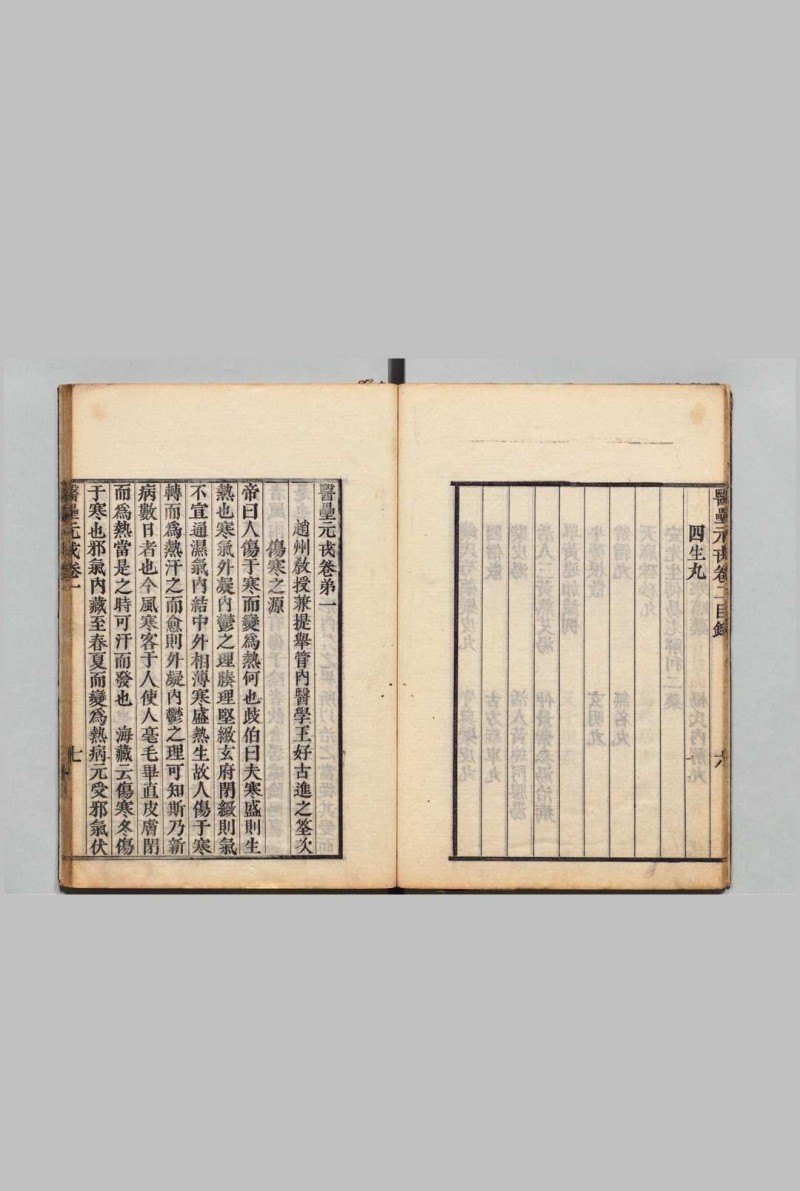 醫壘元戎卷二目錄
六
四生丸
醫壘元戎卷弟一
趙州教授兼提舉管內醫學王好古進之筌次
傷寒之源
帝曰人傷于寒而變爲熱何也歧伯曰夫寒盛則生
熱也寒氣外凝內鬱之理腠理堅緻玄府閉緻則氣
不宣通濕氣內結中外相薄寒盛熱生故人傷于寒
轉而爲熱汗之而愈則外凝內鬱之理可知斯乃新
病數日者也今風寒客于人使人毫毛畢直皮膚閉
而爲熱當是之時可汗而發也　海藏云傷寒冬傷
于寒也邪氣內藏至春夏而變爲熱病元受邪氣伏
醫壘元戎卷一
七